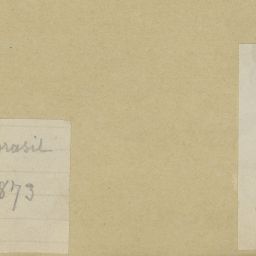 rasil
873